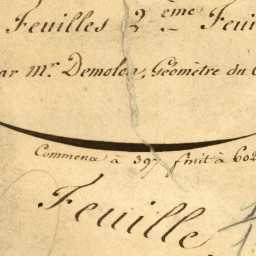 Feuilles 2ème Feui
ar Mr. Demolea, Géomètre du
Commence à 397 finit à 602
Feuille